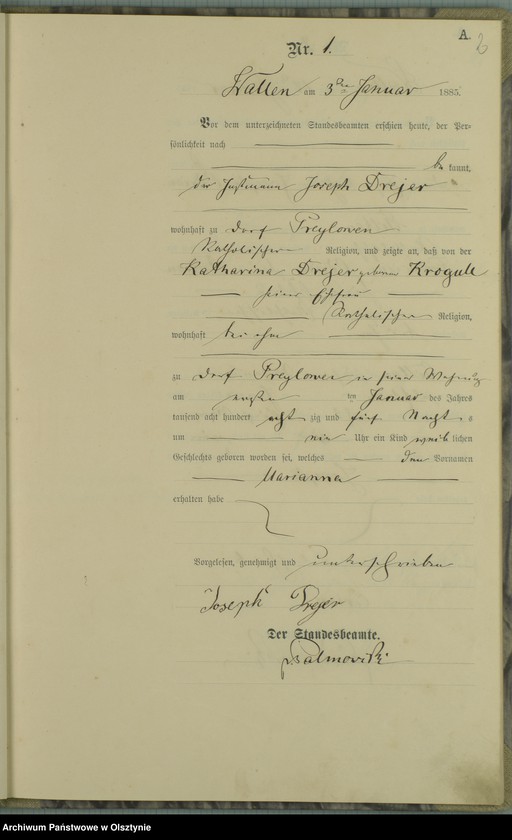 A.
2
Nr. 1.
Wallen am 3ten Januar 1885.
Vor dem unterzeichneten Standesbeamten erschien heute, der Per-
sönlichkeit nach
be kannt,
der Instmann Joseph Drejer
wohnhaft zu Dorf Preylowen
Katholischer Religion, und zeigte an, daß von der
Katharina Drejer geborene Krogull
seiner Ehefrau
Katholischer Religion,
wohnhaft bei ihm
zu Dorf Preylowen in seiner Wohnung
am ersten ten Januar des Jahres
tausend acht hundert acht zig und fünf Nachts
um ein Uhr ein Kind weib lichen
Geschlechts geboren worden sei, welches den Vornamen
Marianna
erhalten habe
Vorgelesen, genehmigt und unterschrieben
Joseph Drejer
Der Standesbeamte.
Palmowski
Archiwum Państwowe w Olsztynie